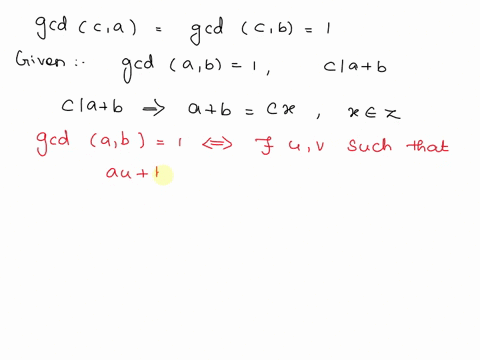 gcd (c,a) = gcd (c,b) = 1
Given :- gcd (a,b) = 1, c|a+b
c|a+b ⇒ a+b = cx, x∈z
gcd (a,b) = 1 ⇔ ∃ u,v such that
au +